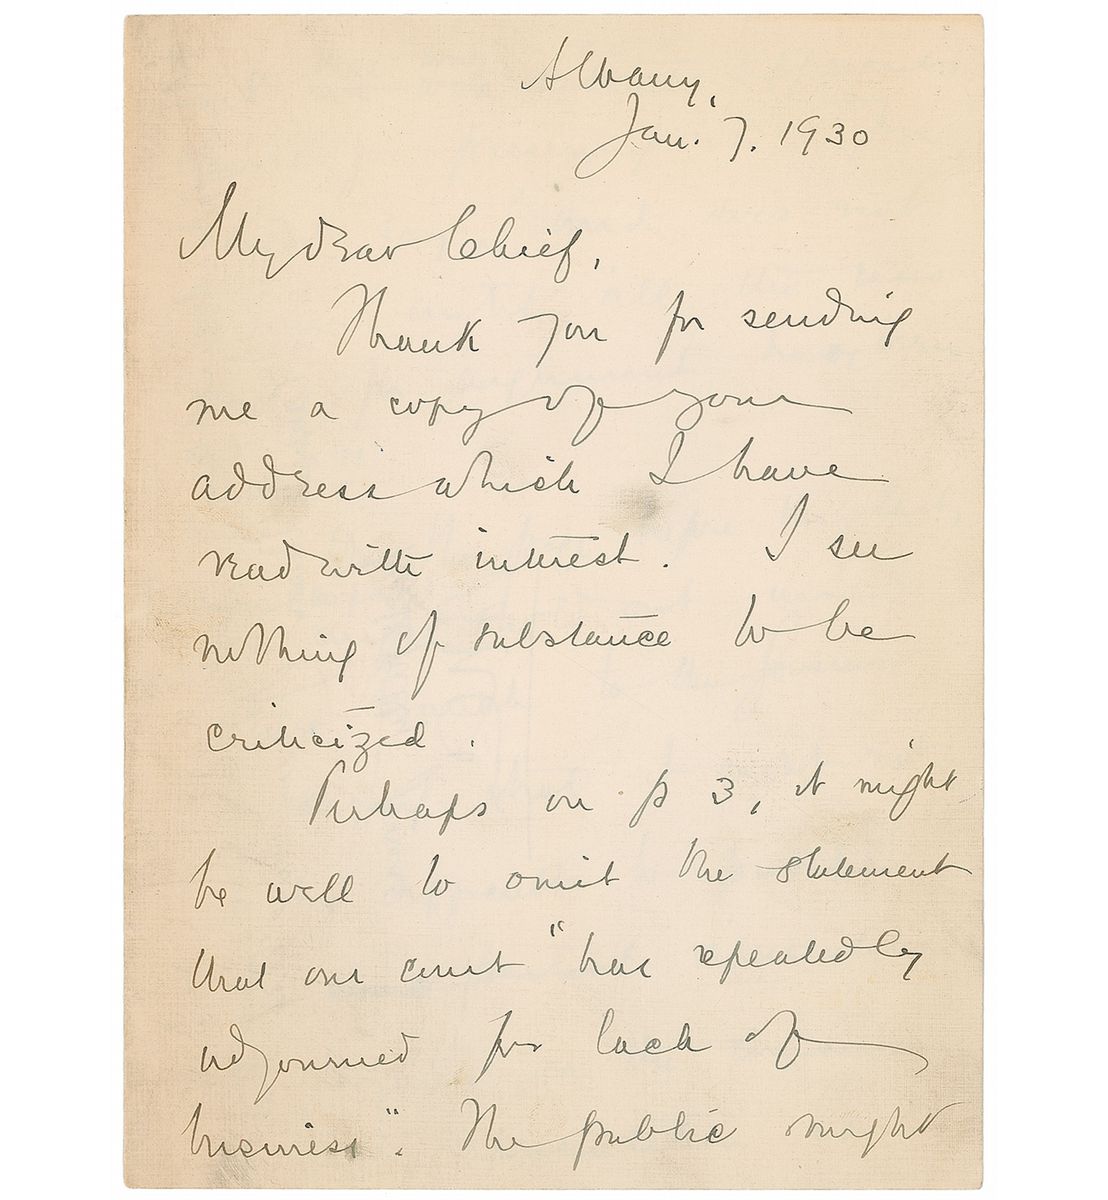 Albany,
Jan. 7. 1930
My dear Chief,
Thank you for sending
me a copy of your
address which I have
read with interest. I see
nothing of substance to be
criticized.
Perhaps on p 3, it might
be well to omit the statement
that our court "has repeatedly
adjourned for lack of
business". The public might